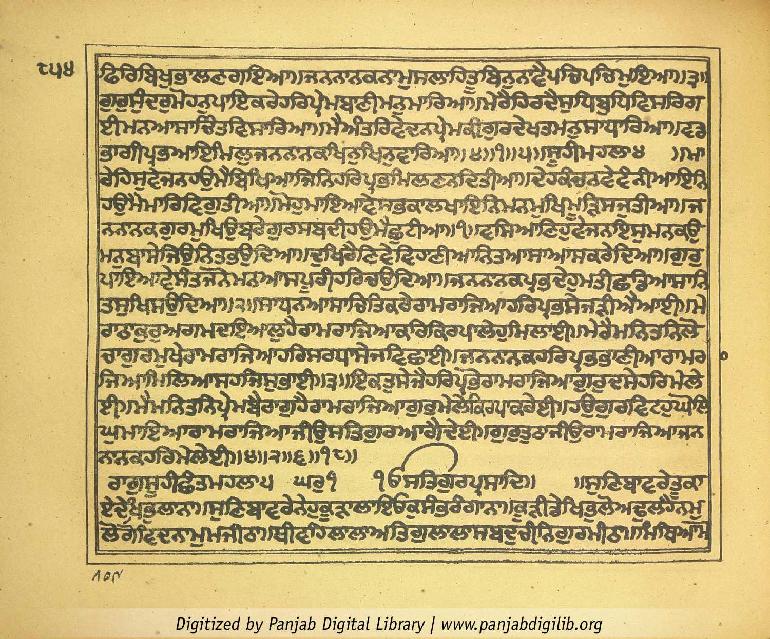 ੮੫੪
ਫਿਰਿਬਿਖੁਭਾਲਣਗਇਆ॥ਜਨਨਾਨਕਨਾਮੁਸਲਾਹਿਤੂਬਿਨੁਨਾਵੈਪਚਿਪਚਿਮੁਇਆ॥੩॥
ਗੁਰਸੁੰਦਰੁਮੋਹਨੁਪਾਇਕਰੇਹਰਿਪ੍ਰੇਮਬਾਣੀਮਨੁਮਾਰਿਆ॥ਮੇਰੈਹਿਰਦੈਸੁਧਿਬੁਧਿਵਿਸਰਿਗ
ਈਮਨਆਸਾਚਿੰਤਵਿਸਾਰਿਆ॥ਮੈਅੰਤਰਿਵੇਦਨਪ੍ਰੇਮਕੀਗੁਰਦੇਖਤਮਨੁਸਾਧਾਰਿਆ॥ਵਡ
ਭਾਗੀਪ੍ਰਭਆਇਮਿਲੁਜਨਨਾਨਕਖਿਨੁਖਿਨੁਵਾਰਿਆ॥੪॥੧॥੫॥ਸੂਹੀਮਹਲਾ੪ ॥ਮਾ
ਰੇਹਿਸੁਵੇਜਨਹਉਮੈਬਿਖਿਆਜਿਨਿਹਰਿਪ੍ਰਭਮਿਲਣਨਦਿਤੀਆ॥ਦੇਹਕੰਚਨਵੇਵੰਨੀਆਇਨਿ
ਹਉਮੈਮਾਰਿਵਿਗੁਤੀਆ॥ਮੋਹੁਮਾਇਆਵੇਸਭਕਾਲਖਾਇਨਿਮਨਮੁਖਿਮੂੜਿਸਜੁਤੀਆ॥ਜ
ਨਨਾਨਕਗੁਰਮੁਖਿਉਬਰੇਗੁਰਸਬਦੀਹਉਮੈਛੁਟੀਆ॥੧॥ਵਸਿਆਣਿਹੁਵੇਜਨਇਸੁਮਨਕਉ
ਮਨੁਬਾਸੇਜਿਉਨਿਤਭਉਦਿਆ॥ਦੁਖਿਰੈਣਿਵੇਵਿਹਾਣੀਆਨਿਤਆਸਾਆਸਕਰੇਦਿਆ॥ਗੁਰੁ
ਪਾਇਆਵੇਸੰਤਜਨੋਮਨਆਸਪੂਰੀਹਰਿਚਉਦਿਆ॥ਜਨਨਾਨਕਪ੍ਰਭਦੇਹੁਮਤੀਛਡਿਆਸਾਨਿ
ਤਸੁਖਿਸਉਦਿਆ॥੨॥ਸਾਧਨਆਸਾਚਿਤਿਕਰੇਰਾਮਰਾਜਿਆਹਰਿਪ੍ਰਭਸੇਜੜੀਐਆਈ॥ਮੇ
ਰਾਠਾਕੁਰੁਅਗਮਦਇਆਲੁਹੈਰਾਮਰਾਜਿਆਕਰਿਕਿਰਪਾਲੇਹੁਮਿਲਾਈ॥ਮੇਰੈਮਨਿਤਨਿਲੋ
ਚਾਗੁਰਮੁਖੇਰਾਮਰਾਜਿਆਹਰਿਸਰਧਾਸੇਜਵਿਛਾਈ॥ਜਨਨਾਨਕਹਰਿਪ੍ਰਭਭਾਣੀਆਰਾਮਰਾ
ਜਿਆਮਿਲਿਆਸਹਜਿਸੁਭਾਈ॥੩॥ਇਕਤੁਸੇਜੈਹਰਿਪ੍ਰਭੋਰਾਮਰਾਜਿਆਗੁਰੁਦਸੇਹਰਿਮੇਲੇ
ਈ॥ਮੈਮਨਿਤਨਿਪ੍ਰੇਮਬੈਰਾਗੁਹੈਰਾਮਰਾਜਿਆਗੁਰੁਮੇਲੇਕਿਰਪਾਕਰੇਈ॥ਹਉਗੁਰਵਿਟਹੁਘੋਲਿ
ਘੁਮਾਇਆਰਾਮਰਾਜਿਆਜੀਉਸਤਿਗੁਰਆਗੈਦੇਈ॥ਗੁਰੁਤੁਠਾਜੀਉਰਾਮਰਾਜਿਆਜਨ
ਨਾਨਕਹਰਿਮੇਲੇਈ॥੪॥੨॥੬॥੧੮॥
ਰਾਗੁਸੂਹੀਛੰਤਮਹਲਾ੫ ਘਰੁ੧ ੴਸਤਿਗੁਰਪ੍ਰਸਾਦਿ॥ ॥ਸੁਣਿਬਾਵਰੇਤੂਕਾ
ਏਦੇਖਿਭੁਲਾਨਾ॥ਸੁਣਿਬਾਵਰੇਨੇਹੁਕੂੜਾਲਾਇਓਕੁਸੰਭਰੰਗਾਨਾ॥ਕੂੜੀਡੇਖਿਭੁਲੋਅਢੁਲਹੈਨਮੁ
ਲੋਗੋਵਿਦਨਾਮੁਮਜੀਠਾ॥ਥੀਵਹਿਲਾਲਾਅਤਿਗੁਲਾਲਾਸਬਦੁਚੀਨਿਗੁਰਮੀਠਾ॥ਮਿਥਿਆਮੋ
Digitized by Panjab Digital Library | www.panjabdigilib.org